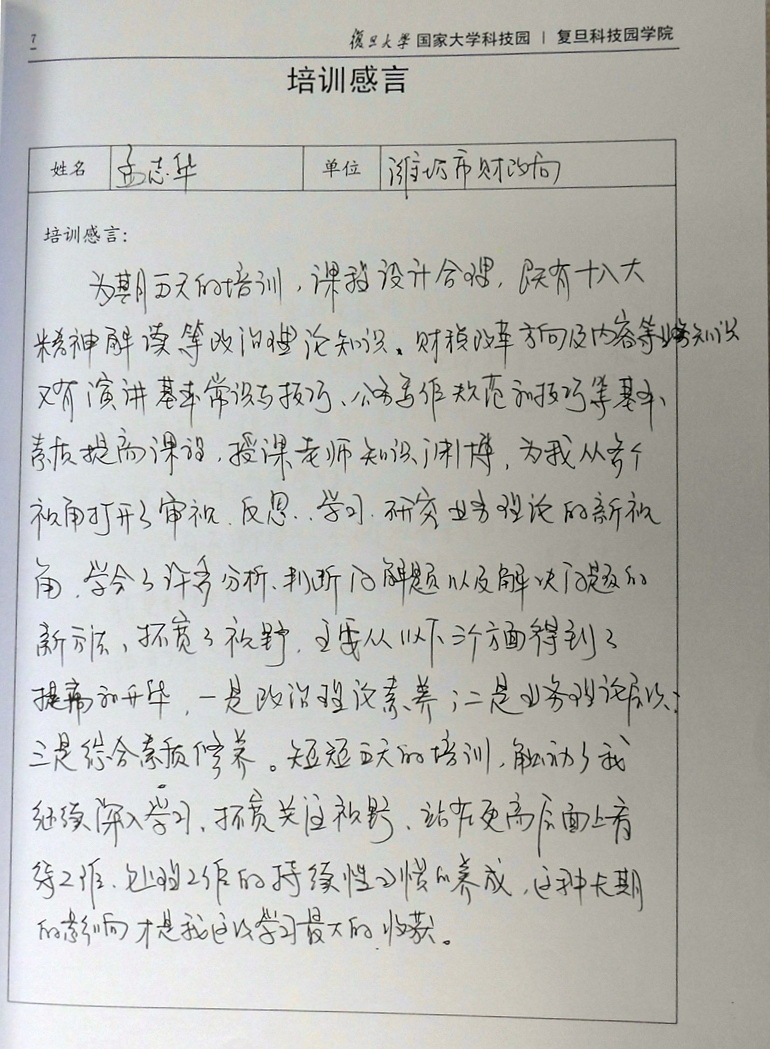 7
复旦大学 国家大学科技园 | 复旦科技园学院
培训感言
姓名 孟志华 单位 潍坊市财政局
培训感言：
为期五天的培训，课程设计合理，既有十八大
精神解读等政治理论知识、财税改革方向及内容等业务知识
又有演讲基本常识与技巧、公务写作规范和技巧等基本
素质提高课设，授课老师知识渊博，为我从多个
视角打开了审视、反思、学习、研究业务理论的新视
角，学会了许多分析、判断问解题以及解决问题的
新方法，拓宽了视野，主要从以下三个方面得到了
提高和升华，一是政治理论素养；二是业务理论层次；
三是综合素质修养。短短五天的培训，触动了我
继续深入学习、拓宽关注视野、站在更高层面上看
待工作、处理工作的持续性习惯的养成，这种长期
的影响才是我这次学习最大的收获。